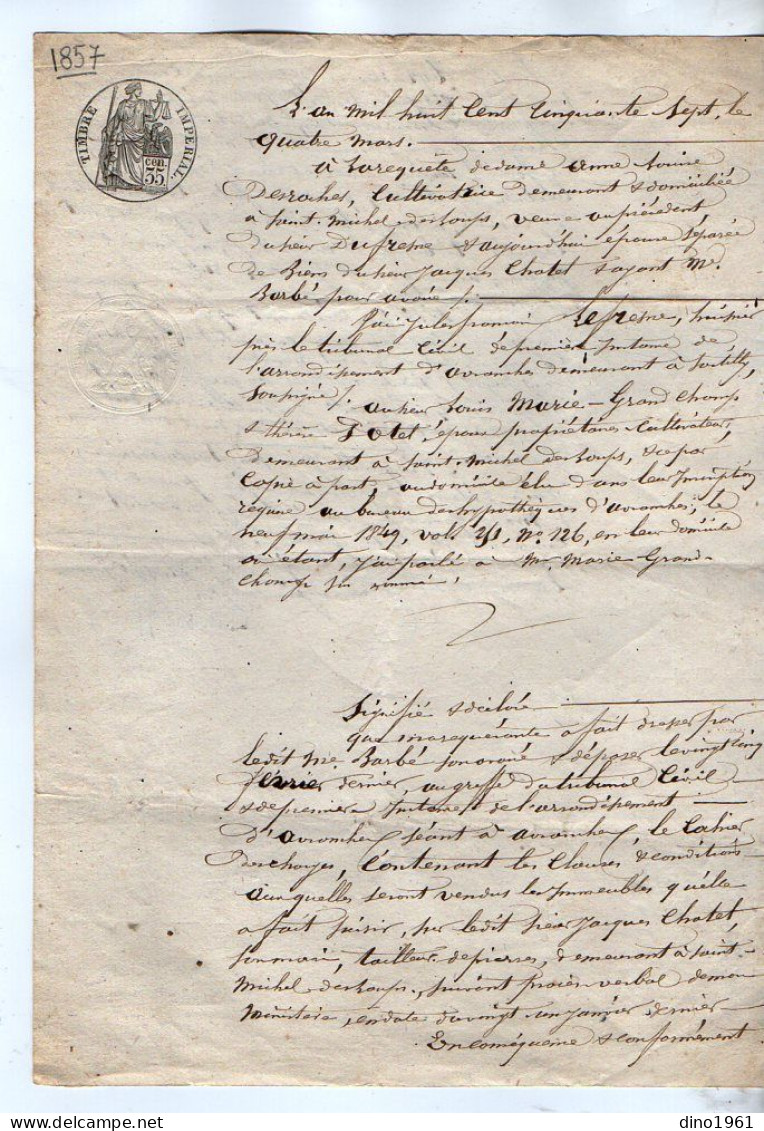 1857
TIMBRE IMPERIAL.
cen.
35
L'an mil huit Cent Cinquante Sept, le
quatre mars.
à la requête de dame Anne Louise
Desroches, Cultivatrice demeurant & domiciliée
à Saint-Michel-des-Loups, veuve en précédent
du sieur Dufresne & aujourd'hui épouse séparée
de Biens du sieur Jacques Chatel & ayant Me
Barbé pour avoué /.
J'ai Jules Lefresne, huissier
près le tribunal Civil de première Instance de
l'arrondissement d'avranches demeurant à Sartilly,
Soussigné /.
au sieur Louis Marie-Grandchamp
& thérèse Potel, époux propriétaires-Cultivateurs,
Demeurant à Saint-Michel des Loups, & ce par
Copie à part, au domicile élu dans leur Inscription
requise au bureau des hypothèques d'avranches, le
neuf mai 1849, vol. No 126, en leur domicile
où étant, j'ai parlé à M. Marie-Grand-
champ
Signifié & déclaré
que ma requérante a fait dresser par
ledit Me Barbé son avoué & déposer le vingt Cinq
février dernier, au greffe du tribunal Civil
& de première Instance de l'arrondissement
D'avranches, séant à avranches, le Cahier
Des charges, Contenant les Clauses & conditions
auxquelles seront vendus les Immeubles qu'elle
a fait saisir, sur ledit sieur Jacques Chatel,
son mari, tailleur de pierres, demeurant à Saint-
Michel-des-Loups, suivant procès-verbal de mon
Ministère, en date du vingt un janvier dernier
En conséquence & conformément
dino1961